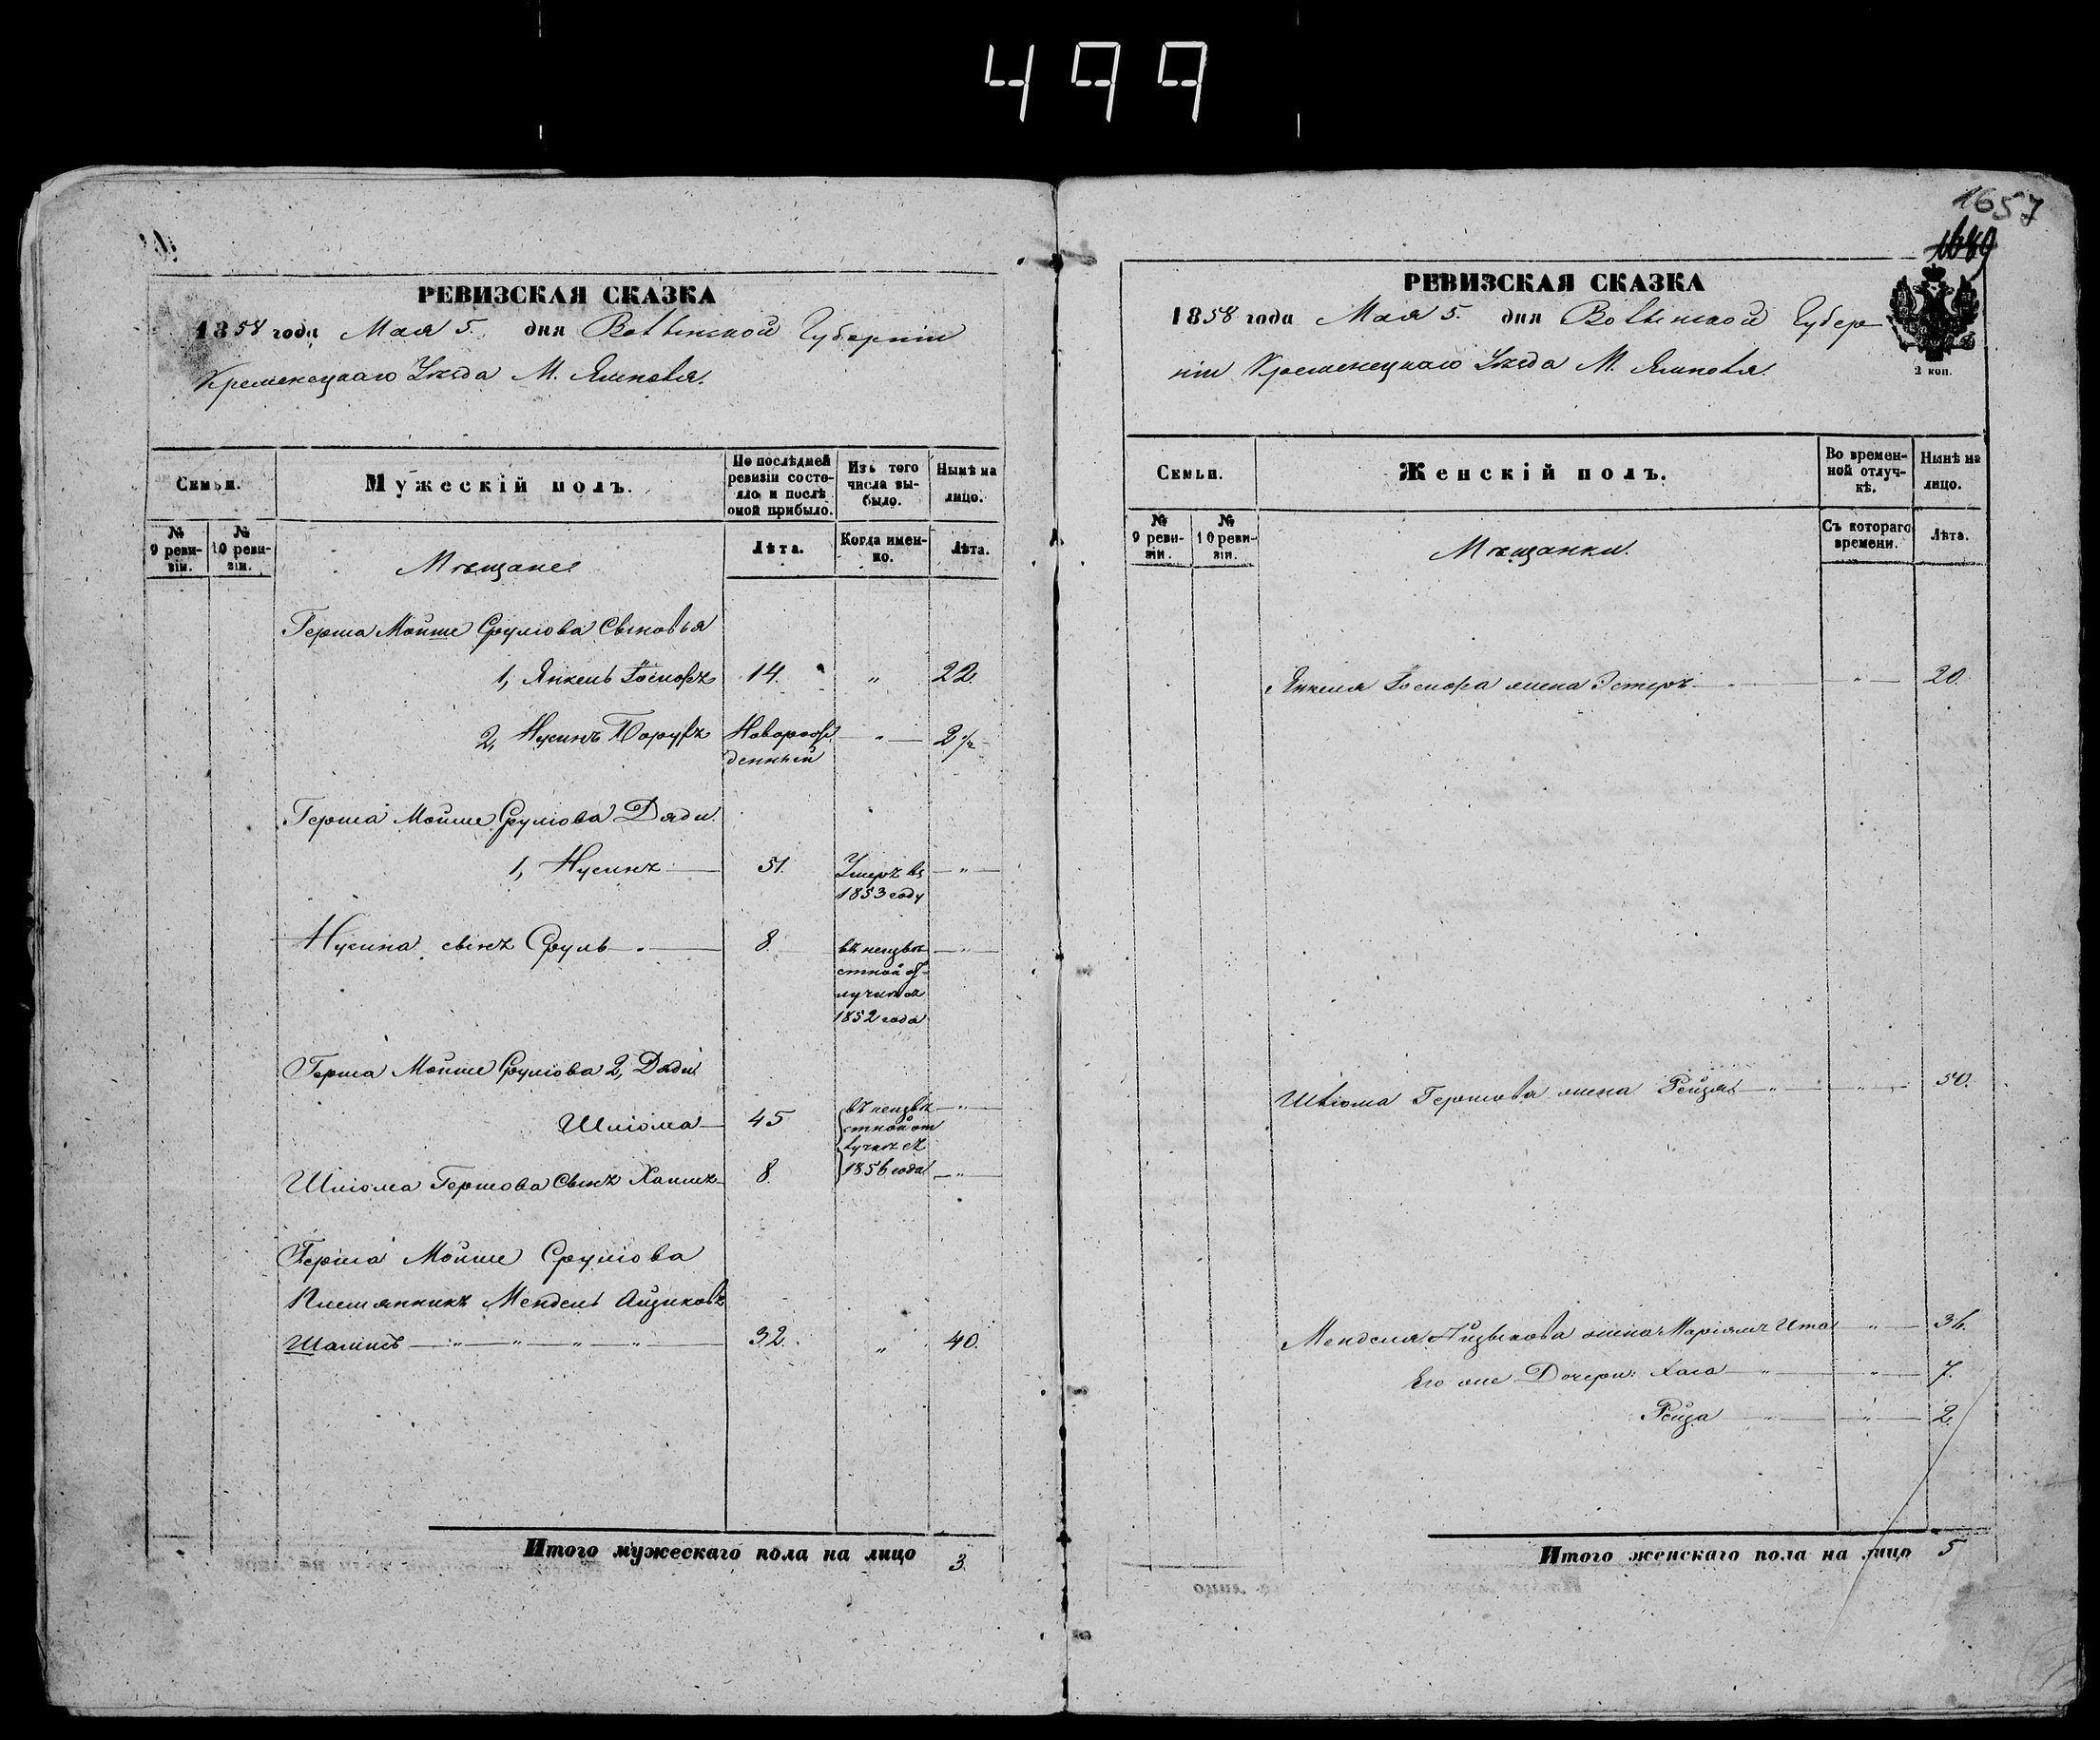 499
1657
1689
РЕВИЗСКАЯ СКАЗКА
1858 года Мая 5. дня Волынской Губерніи
Кременецкаго Уѣзда М. Ямполя.
Семьи.
Мужескій полъ.
По послѣдней ревизіи состояло и послѣ оной прибыло.
Изъ того числа выбыло.
Нынѣ на лицо.
№ 9 ревизіи.
№ 10 ревизіи.
Мѣщане
Лѣта.
Когда именно.
Лѣта.
Герша Мойше Срулова Сыновья
1, Янкель Іосифъ 14. " 22.
2, Нусинъ Борухъ Новорож- " 2 1/2
денный
Герша Мойше Срулова Дяди.
1, Нусинъ 51. Умеръ въ "
1853 году
Нусина сынъ Сруль 8. въ неизвѣ- "
стной от-
лучкѣ съ
1852 года
Герша Мойше Срулова 2, Дяди
Шліома 45 въ неизвѣ- "
стной от
лучкѣ съ
Шліома Гершова Сынъ Хаимъ 8. 1856 года "
Герша Мойше Срулова
Племянникъ Мендель Айзиковъ
Шамисъ " " " " 32. " 40.
Итого мужескаго пола на лицо 3.
РЕВИЗСКАЯ СКАЗКА
1858 года Мая 5. дня Волынской Губер
ніи Кременецкаго Уѣзда М. Ямполя.
2 коп.
Семьи.
Женскій полъ.
Во временной отлучкѣ.
Нынѣ на лицо.
№ 9 ревизіи.
№ 10 ревизіи.
Мѣщанки.
Съ котораго времени.
Лѣта.
Янкеля Іосифа жена Эстеръ " 20.
Шліома Гершова жена Рейзя " " 50.
Менделя Айзыкова жена Маріямъ Ита " 36.
Его же Дочери: Хася " " 7.
Рейза " " 2.
Итого женскаго пола на лицо 5